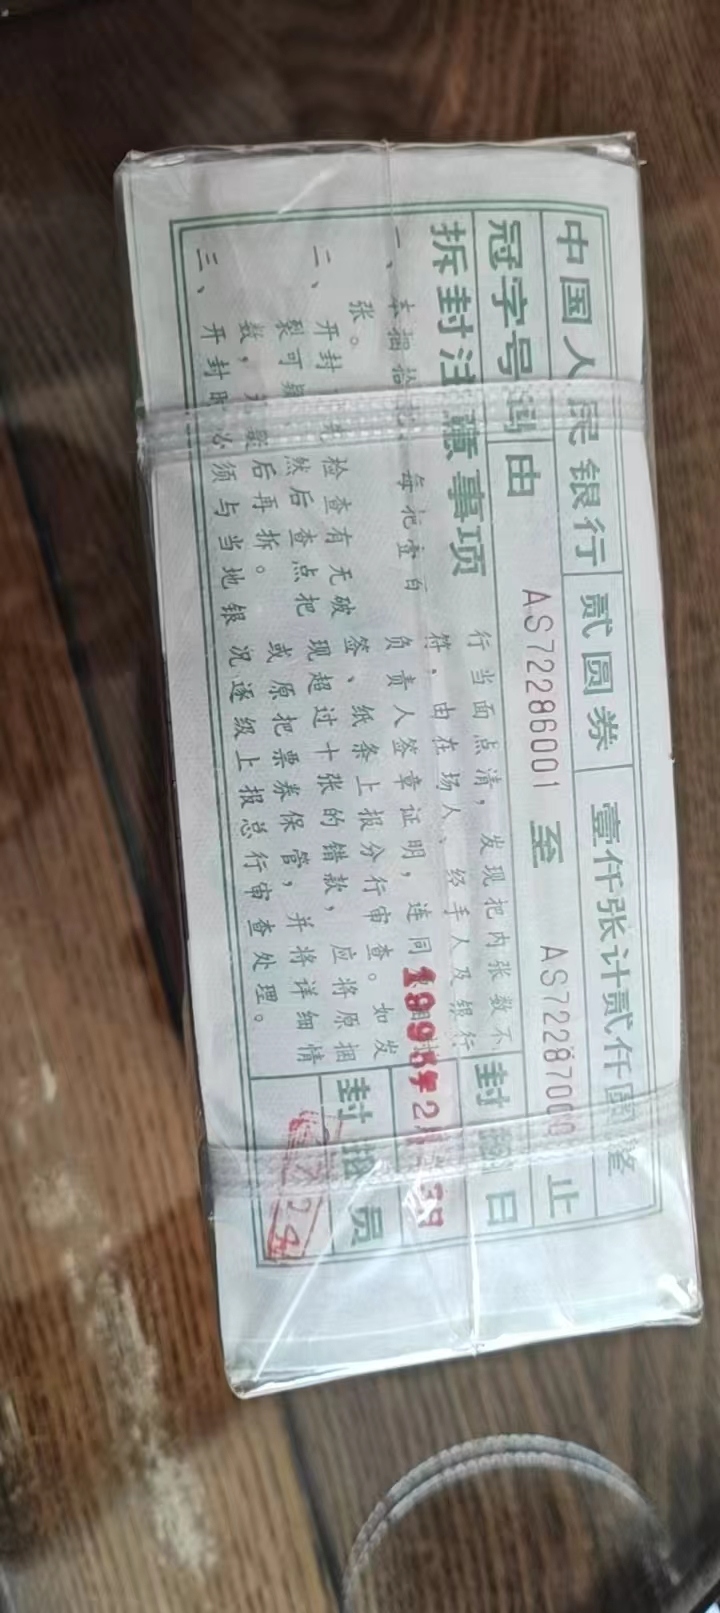 中国人民银行 贰圆券 壹仟张计贰仟圆整
冠字号码由 AS72286001 至 AS72287000 止
拆封注意事项
一、本捆拾把，每把壹百
张。
二、开封 先检查有无破
裂可疑，然后查点把
数，无 后再拆。
三、开封时必须与当地银
行当面点清，发现把内张数不
符，由在场人、经手人及银行
负责人签章证明，连同
签、纸条上报分行审查。如发
现超过十张的错款，应将原捆
或原把票券保管，并将详细情
况逐级上报总行审查处理。
封捆日
封捆员